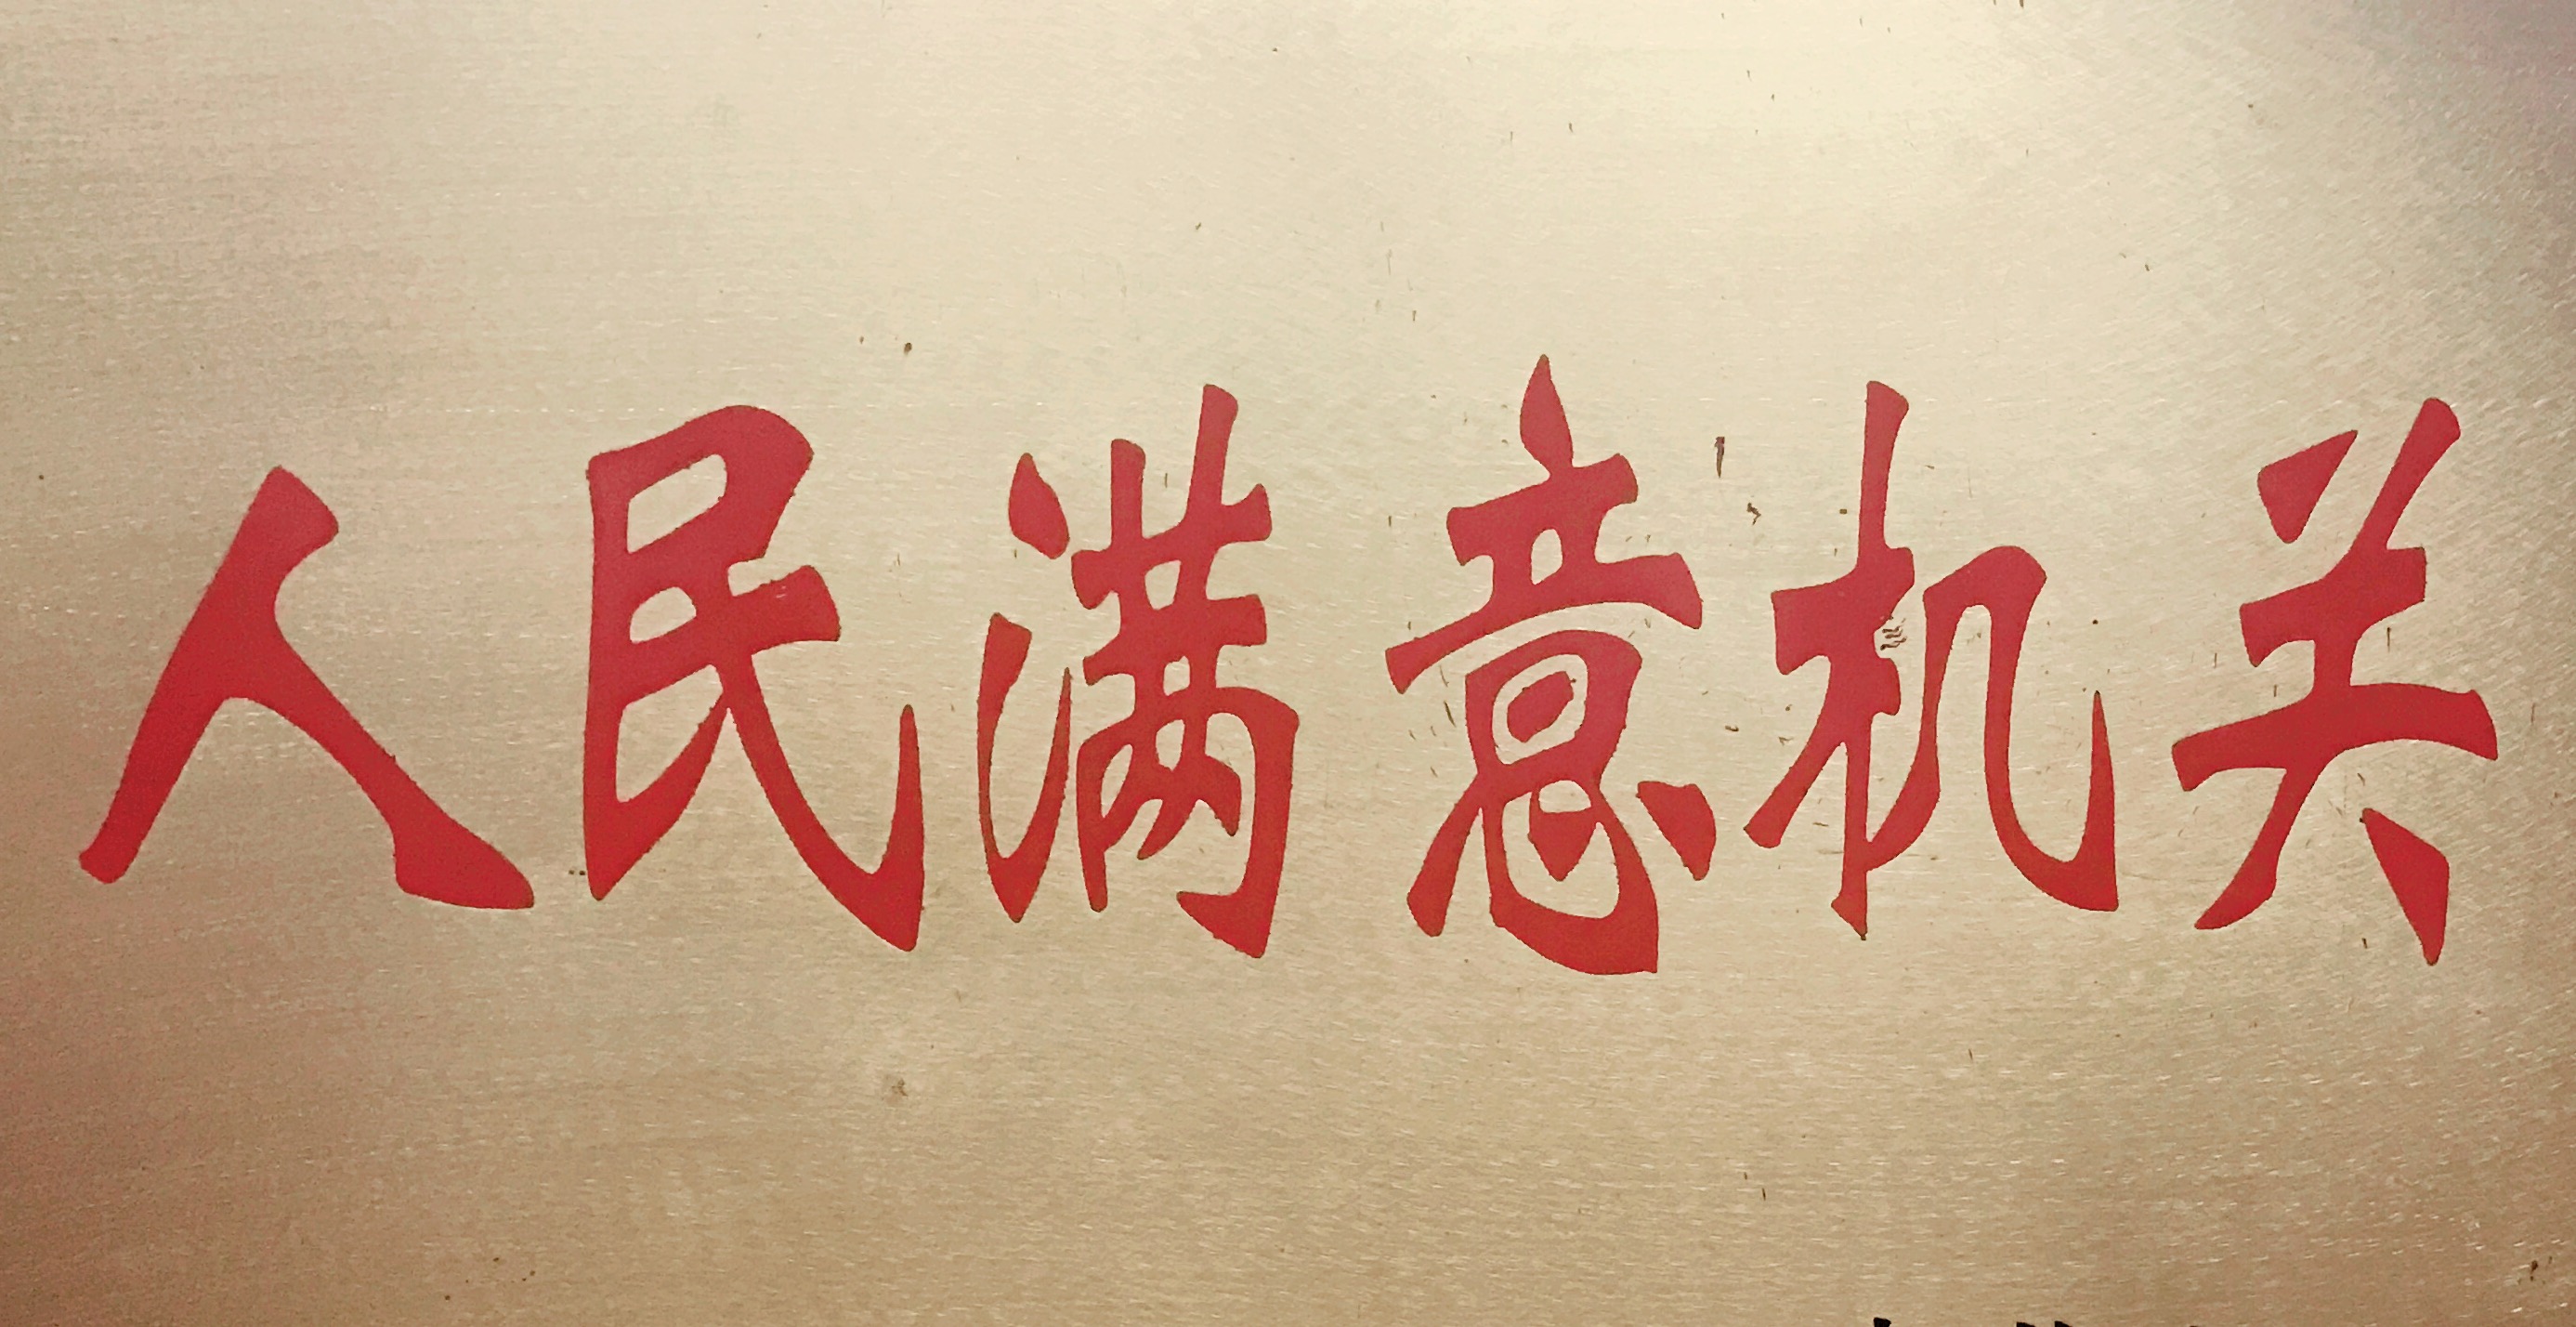 人民满意机关